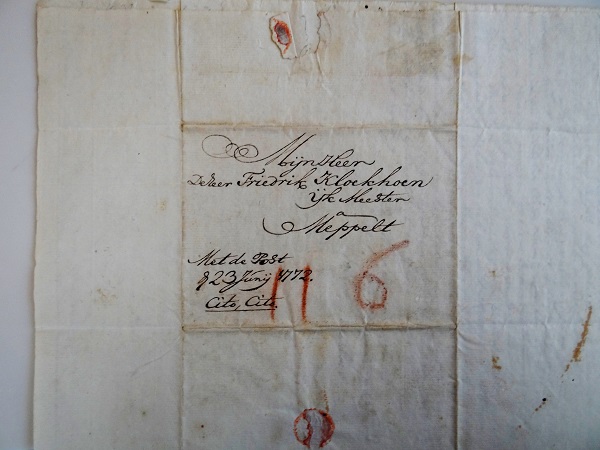 Mijn Heer
De Heer Friedrik Kloekhoen
Ijk Meester
a
Meppelt
Met de Post
23 Junij 1772.
Cito, Cito.
11 6